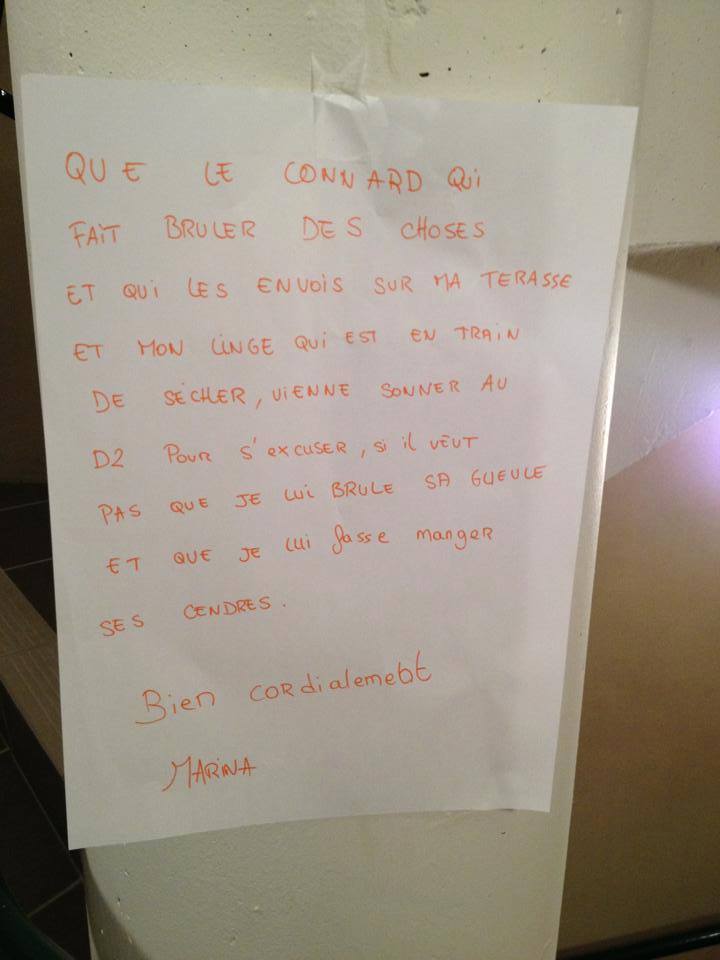 QUE LE CONNARD QUi
FAiT BRULER DES CHOSES
ET QUi LES ENVOiS SUR MA TERASSE
ET MON LiNGE QUi EST EN TRAiN
DE SÉCHER, ViENNE SONNER AU
D2 POUR S'EXCUSER, Si iL VEUT
PAS QUE JE LUi BRULE SA GUEULE
ET QUE JE LUi fasse mangeR
SES CENDRES.
Bien CORdialement
MARiNA